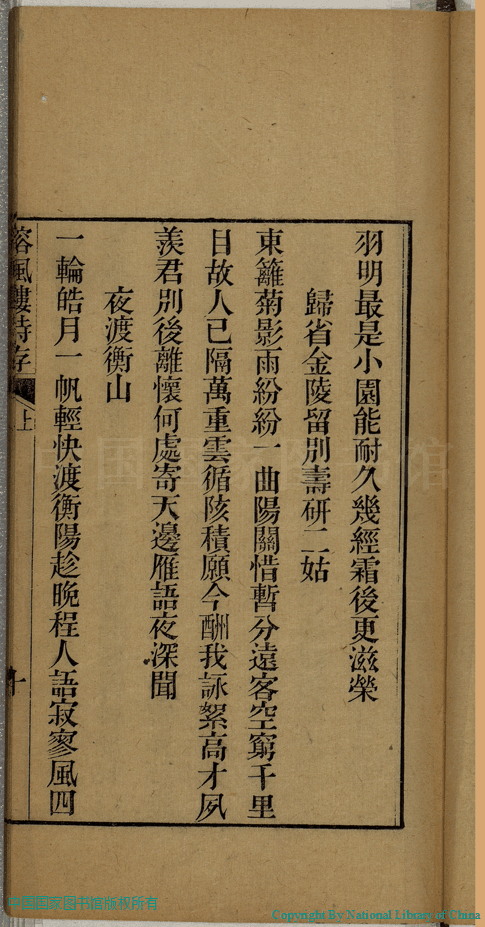 羽明最是小園能耐久幾經霜後更滋榮
歸省金陵留別壽研二姑
東籬菊影雨紛紛一曲陽關惜暫分遠客空窮千里
目故人已隔萬重雲循陔積願今酬我詠絮高才夙
羨君別後離懷何處寄天邊雁語夜深聞
夜渡衡山
一輪皓月一帆輕快渡衡陽趁晩程人語寂寥風四
風樓詩存
上
十
中国国家图书馆
中国国家图书馆版权所有
Copyright By National Library of China